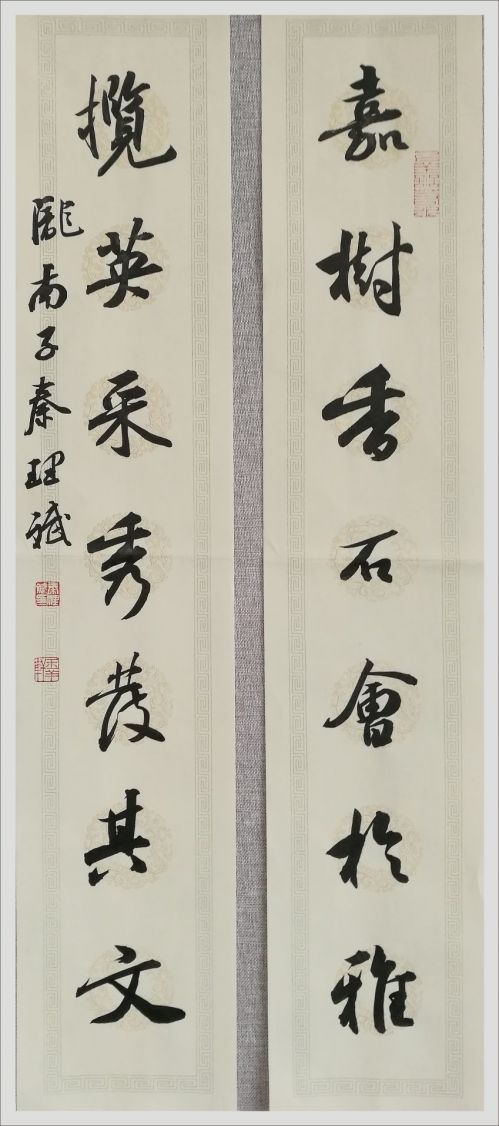 嘉樹香石會於雅
攬英采秀發其文
子秦理斌